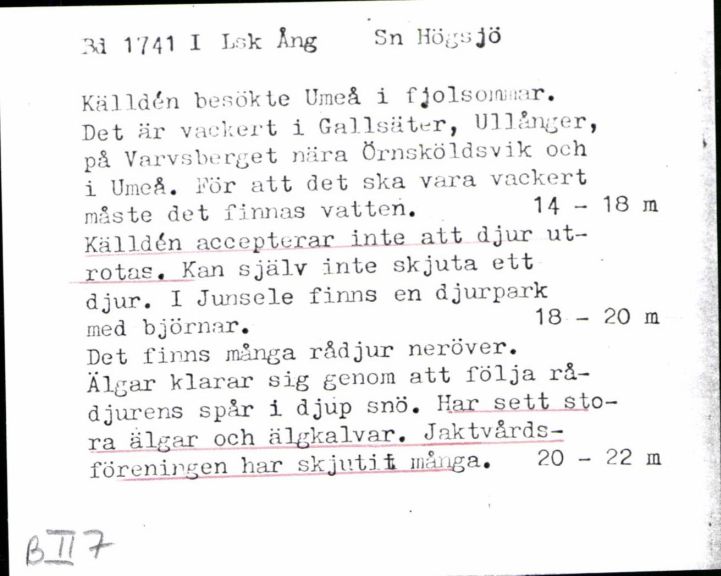 Bd 1741 I Lsk Ång Sn Högsjö
Källdén besökte Umeå i fjolsommar.
Det är vackert i Gallsäter, Ullånger,
på Varvsberget nära Örnsköldsvik och
i Umeå. För att det ska vara vackert
måste det finnas vatten. 14 - 18 m
Källdén accepterar inte att djur ut-
rotas. Kan själv inte skjuta ett
djur. I Junsele finns en djurpark
med björnar. 18 - 20 m
Det finns många rådjur neröver.
Älgar klarar sig genom att följa rå-
djurens spår i djup snö. Har sett sto-
ra älgar och älgkalvar. Jaktvårds-
föreningen har skjutit många. 20 - 22 m
B II 7